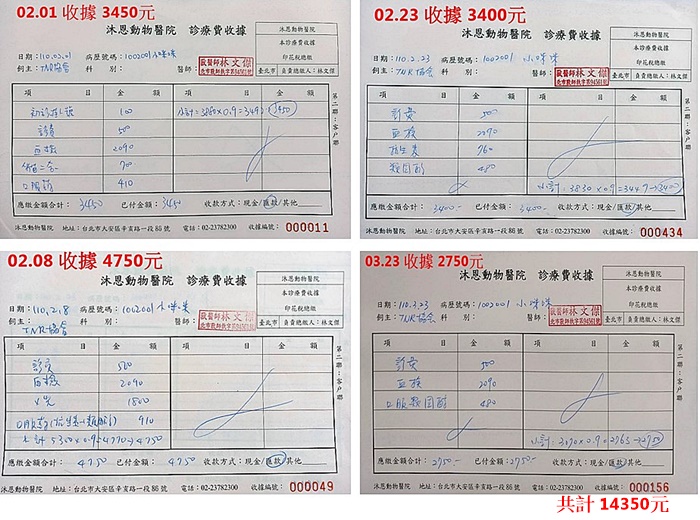 02.01 收據 3450元
沐恩動物醫院 診療費收據
沐恩動物醫院
本診療費收據
印花稅總繳
日期：110.02.01 病歷號碼：1002001 小咪咪
飼主：TNR協會 科別： 醫師：獸醫師林文傑
臺北市 負責總繳人：林文傑
項目 金額 項目 金額
初診掛號 100 小計=3800×0.9=3492→3450
診費 500
血檢 2090
700
口服藥 410
第二聯：客戶聯
應繳金額合計：3450 已付金額：3450 收款方式：現金/匯款/其他
沐恩動物醫院 地址：台北市大安區辛亥路一段86號 電話：02-23782300 收據編號：000011
02.23 收據 3400元
沐恩動物醫院 診療費收據
沐恩動物醫院
本診療費收據
印花稅總繳
日期：110.2.23 病歷號碼：1002001 小咪咪
飼主：TNR協會 科別： 醫師：獸醫師林文傑
臺北市 負責總繳人：林文傑
項目 金額 項目 金額
診費 500
血檢 2090
抗生素 760
類固醇 480
小計=3830×0.9=3447→3400
第二聯：客戶聯
應繳金額合計：3400- 已付金額：3400- 收款方式：現金/匯款/其他
沐恩動物醫院 地址：台北市大安區辛亥路一段86號 電話：02-23782300 收據編號：000434
02.08 收據 4750元
沐恩動物醫院 診療費收據
沐恩動物醫院
本診療費收據
印花稅總繳
日期：110.2.8 病歷號碼：1002001 小咪咪
飼主：TNR協會 科別： 醫師：獸醫師林文傑
臺北市 負責總繳人：林文傑
項目 金額 項目 金額
診費 500
血檢 2090
X光 1800
口服藥(抗生素+類固醇) 910
小計 5300×0.9=4770→4750
第二聯：客戶聯
應繳金額合計：4750 已付金額：4750 收款方式：現金/匯款/其他
沐恩動物醫院 地址：台北市大安區辛亥路一段86號 電話：02-23782300 收據編號：000049
03.23 收據 2750元
沐恩動物醫院 診療費收據
沐恩動物醫院
本診療費收據
印花稅總繳
日期：110.3.23 病歷號碼：1002001 小咪咪
飼主：TNR協會 科別： 醫師：獸醫師林文傑
臺北市 負責總繳人：林文傑
項目 金額 項目 金額
診費 500
血檢 2090
口服類固醇 480
小計=3070×0.9=2763→2750
第二聯：客戶聯
應繳金額合計：2750- 已付金額：2750- 收款方式：現金/匯款/其他
沐恩動物醫院 地址：台北市大安區辛亥路一段86號 電話：02-23782300 收據編號：000156
共計 14350元